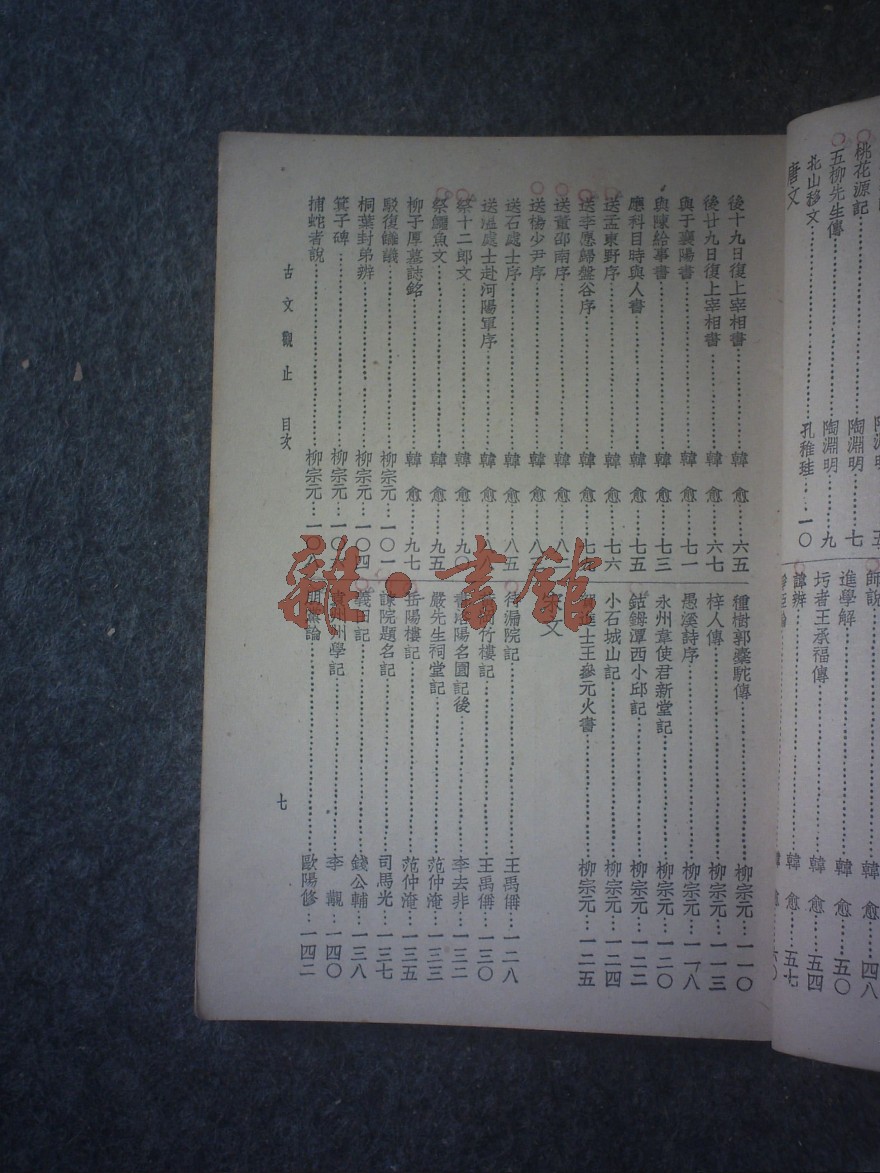 桃花源記……陶淵明…七
五柳先生傳……陶淵明…九
北山移文……孔稚珪…一〇
唐文
師說……韓 愈…四八
進學解……韓 愈…五〇
圬者王承福傳……韓 愈…五四
諱辨……韓 愈…五七
後十九日復上宰相書……韓 愈……六五
後廿九日復上宰相書……韓 愈……六七
與于襄陽書……韓 愈……七一
與陳給事書……韓 愈……七三
應科目時與人書……韓 愈……七五
送孟東野序……韓 愈……七六
送李愿歸盤谷序……韓 愈……七
送董邵南序……韓 愈……八
送楊少尹序……韓 愈……八三
送石處士序……韓 愈……八五
送溫處士赴河陽軍序……韓 愈……八
祭十二郎文……韓 愈……九〇
祭鱷魚文……韓 愈……九五
柳子厚墓誌銘……韓 愈……九七
駁復讎議……柳宗元…一〇一
桐葉封弟辨……柳宗元…一〇四
箕子碑……柳宗元…一〇
捕蛇者說……柳宗元…一〇八
種樹郭橐駝傳……柳宗元…一一〇
梓人傳……柳宗元…一一三
愚溪詩序……柳宗元…一一八
永州韋使君新堂記……柳宗元…一二〇
鈷鉧潭西小邱記……柳宗元…一二二
小石城山記……柳宗元…一二四
進士王參元火書……柳宗元…一二五
宋文
待漏院記……王禹偁…一二八
竹樓記……王禹偁…一三〇
書洛陽名園記後……李去非…一三二
嚴先生祠堂記……范仲淹…一三三
岳陽樓記……范仲淹…一三五
諫院題名記……司馬光…一三七
義田記……錢公輔…一三八
州學記……李 覯…一四〇
朋黨論……歐陽修…一四二
古文觀止 目次
七
雜·書館